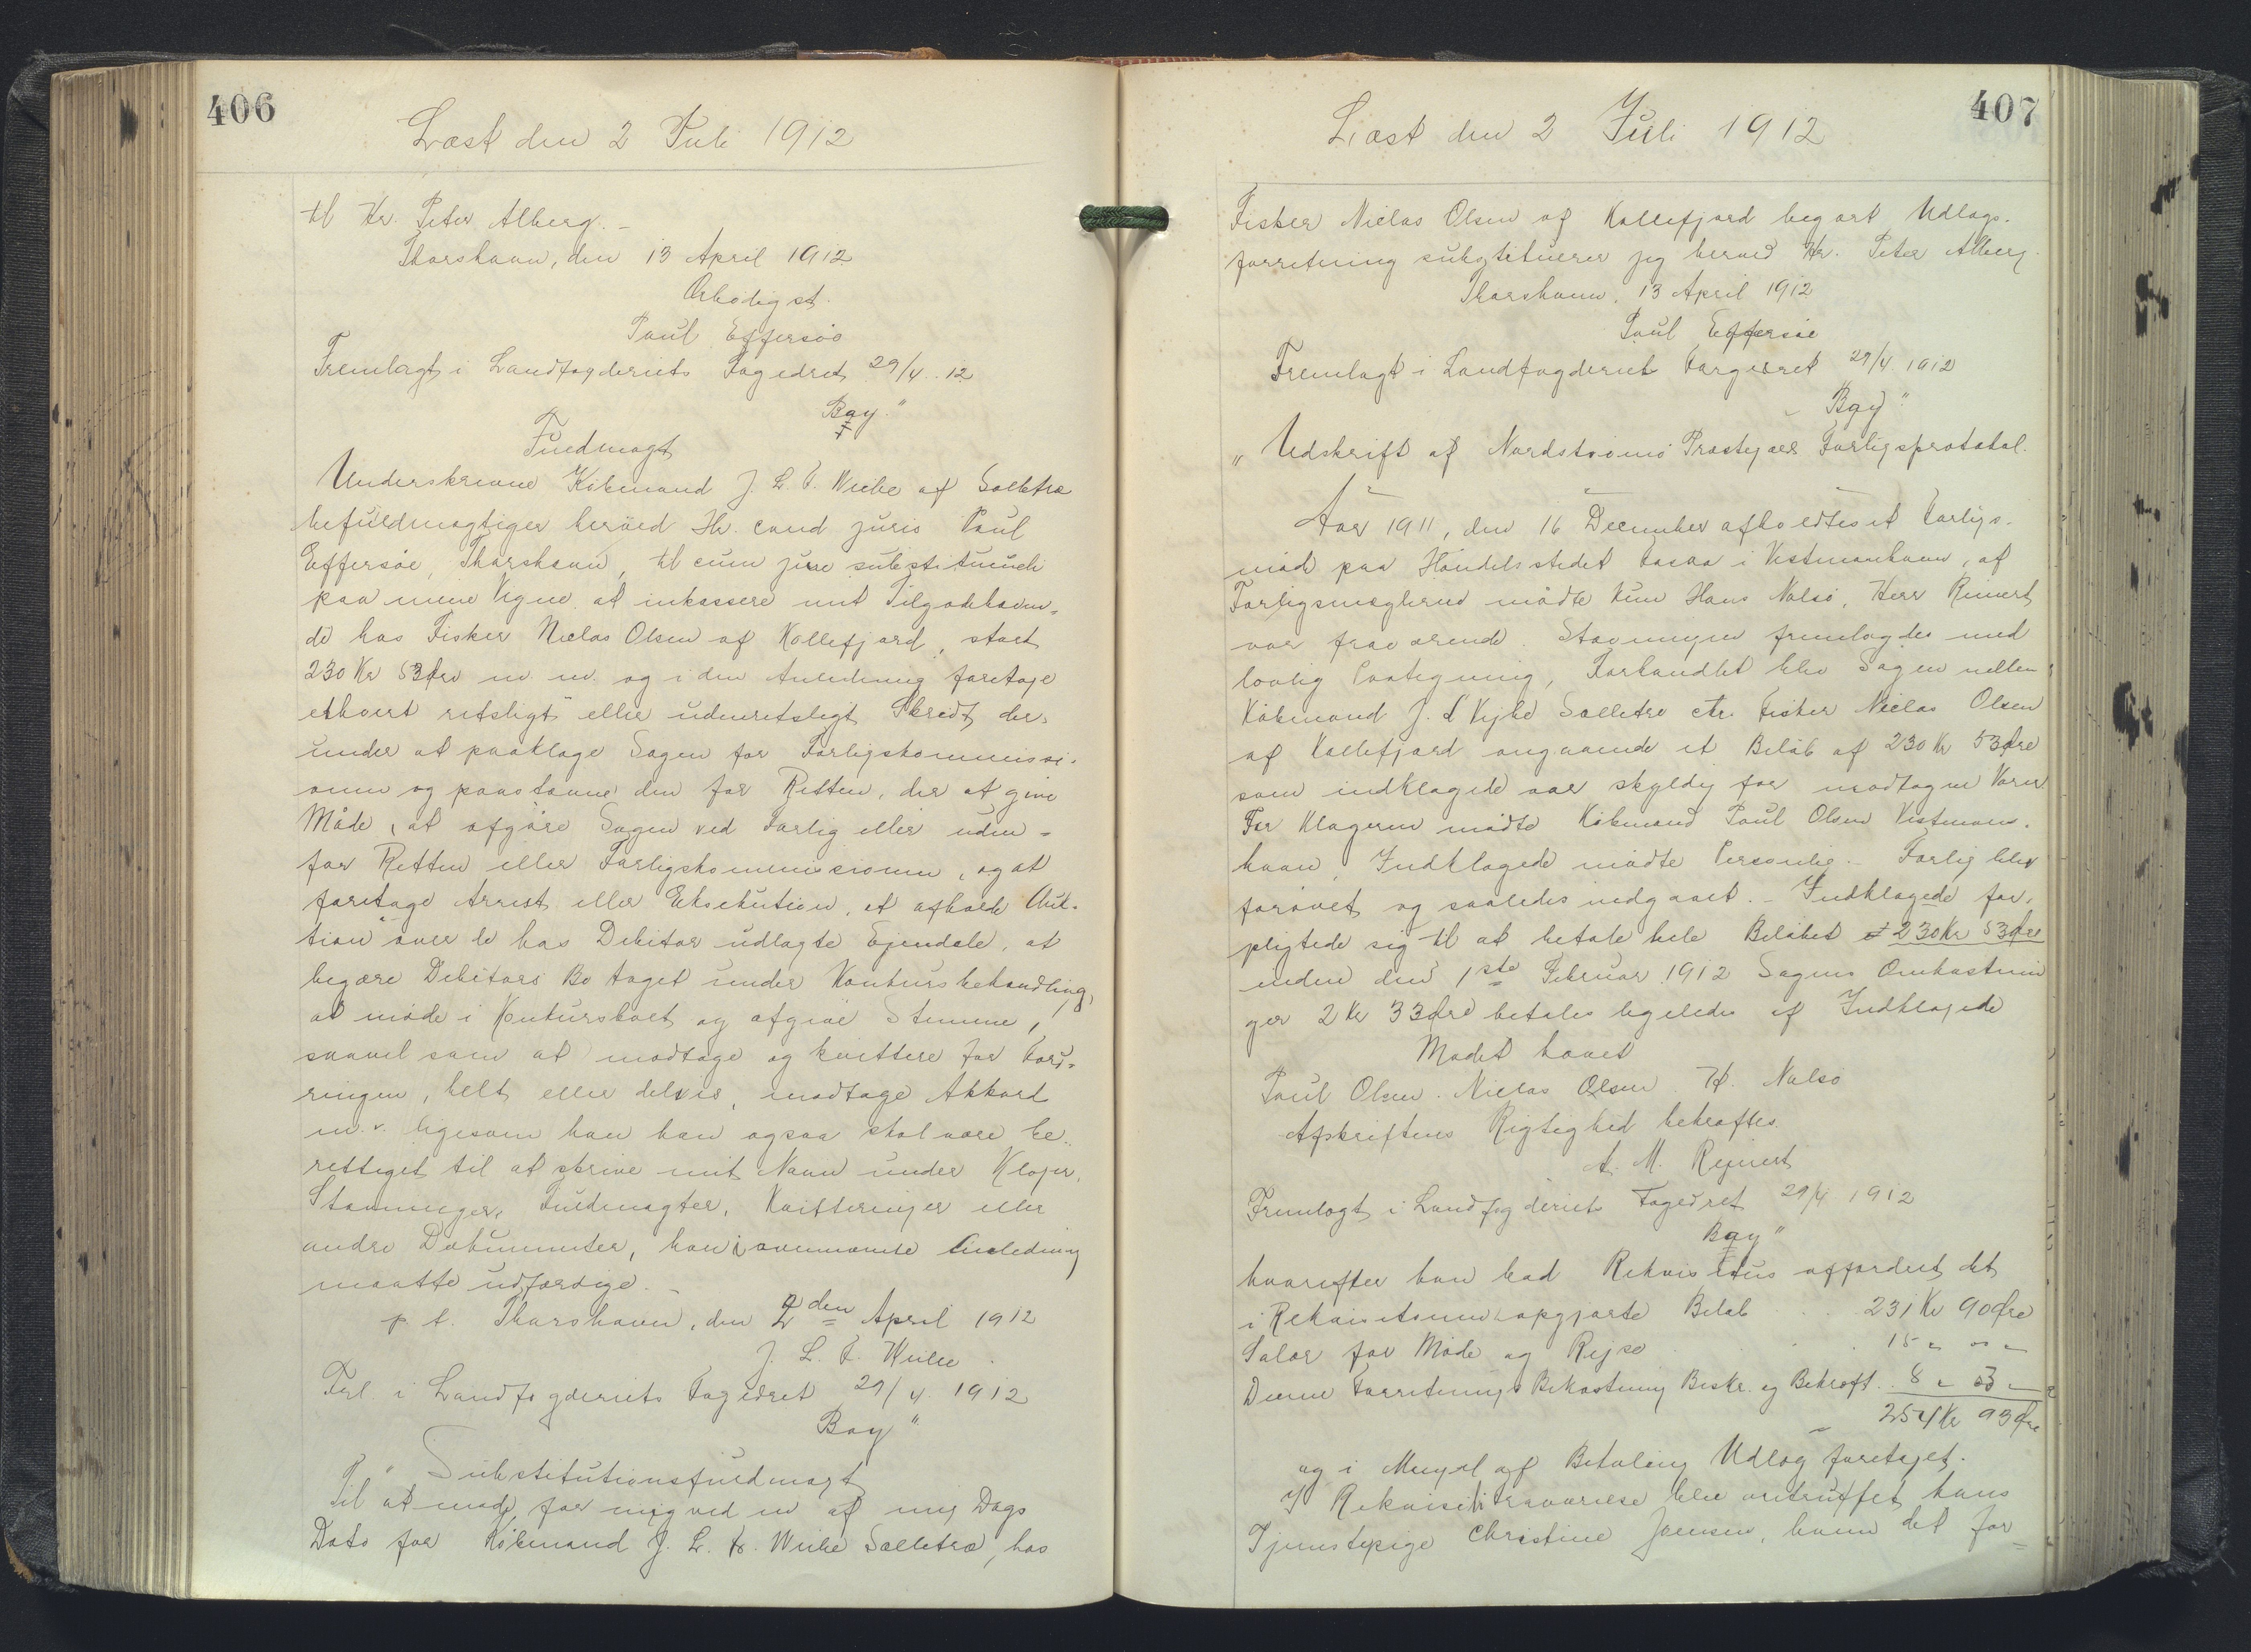 406
Læst den 2 Juli 1912
til Hr. Peter Alberg. –
Thorshavn, den 13 April 1912
Ærbødigst.
Poul Effersøe
Fremlagt i Landfogderiets Fogedret 29/4. 12
Bay."
Fuldmagt
Underskrevne Købmand J. L. F. Weihe af Selletræ
befuldmægtiger herved Hr. cand juris Poul
Effersøe, Thorshavn, til cum jure substituendi
paa mine Vegne at inkassere mit Tilgodehaven-
de hos Fisker Niclas Olsen af Kollefjord, stort
230 Kr 53 Øre m. m. og i den Anledning foretage
ethvert retsligt eller udenretsligt Skridt, der-
under at paaklage Sagen for Forligskommissi-
onen og paastævne den for Retten, der at give
Møde, at afgøre Sagen ved Forlig eller uden-
for Retten eller Forligskommissionen, og at
foretage Arrest eller Eksekution, at afholde Auk-
tion over de hos Debitor udlagte Ejendele, at
begære Debitors Bo taget under Konkursbehandling,
at møde i Konkursboet og afgive Stemme,
saavel som at modtage og kvittere for Ford-
ringen, helt eller delvis, modtage Akkord
m. v. ligesom han han ogsaa skal være be-
rettiget til at skrive mit Navn under Klager,
Stævninger, Fuldmagter, Kvitteringer eller
andre Dokumenter, han i ovennævnte Anledning
maatte udfærdige. –
p. t. Thorshavn, den 2den April 1912
J. L. F. Weihe.
Frl. i Landfogderiets Fogedret 29/4. 1912
Bay"
" Substitutionsfuldmagt
Til at møde for mig ved en af mig Dags
Dato for Købmand J. L. F. Weihe Selletræ, hos
407
Læst den 2 Juli 1912
Fisker Niclas Olsen af Kollefjord begært Udlægs-
forretning substituerer jeg herved Hr. Peter Alberg.
Thorshavn, 13 April 1912
Poul Effersøe
Fremlagt i Landfogderiet Fogedret 29/4 1912
Bay"
" Udskrift af Nordstrømø Præstegæld Forligsprotokol.
Aar 1911, den 16 December afholdtes et Forligs-
møde paa Handelsstedet i Vestmanhavn, af
Forligsmæglerne mødte kun Hans Nolsø, Herr Reinert
var fraværende. Stævningen fremlagdes med
lovlig Paategning, Forhandlet blev Sagen mellem
Købmand J. L Vejhe Selletræ ctr. Fisker Niclas Olsen
af Kollefjord angaaende et Beløb af 230 Kr 53 Øre
som indklagede var skyldig for modtagne Varer
For Klageren mødte Købmand Poul Olsen Vestman-
havn, Indklagede mødte Personlig. – Forlig blev
prøvet og saaledes indgaaet. – Indklagede for-
pligtede sig til at betale hele Beløbet 230 Kr 53 Øre
inden den 1ste Februar 1912 Sagens Omkostnin
ger 2 Kr 33 Øre betales ligeledes af Indklagede
Mødet hævet
Poul Olsen. Niclas Olsen H. Nolsø
Afskriftens Rigtighed bekræftes.
A. M. Rejnert
Fremlagt i Landfogderiets Fogedret 29/4 1912
Bay"
hvorefter han bad Rekvisitus affordret det
i Rekvisitionen opgjorte Beløb . . . 231 Kr 90 Øre
Salær for Møde og Rejse . . 15 " 00 "
Denne Forretnings Bekostning Beskr. og Bekræft. 8 " 03 "
254 Kr 93 Øre
og i Mangel af Betaling Udlæg foretaget.
I Rekvisiti Fraværelse blev antruffet hans
Tjenstepige Christine Joensen, hvem det for-